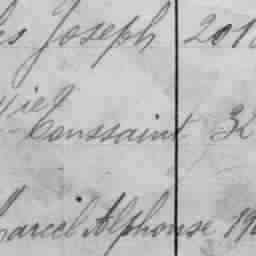 es Joseph 201
Toussaint 32
Marcel Alphonse 19